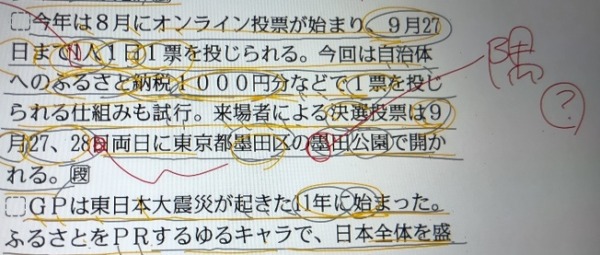 今年は８月にオンライン投票が始まり　９月27
日まで1人１日１票を投じられる。今回は自治体
へのふるさと納税１０００円分などで１票を投じ
られる仕組みも試行。来場者による決選投票は９
月27、28日両日に東京都墨田区の墨田公園で開か
れる。
ＧＰは東日本大震災が起きた11年に始まった。
ふるさとをＰＲするゆるキャラで、日本全体を盛
隅
?